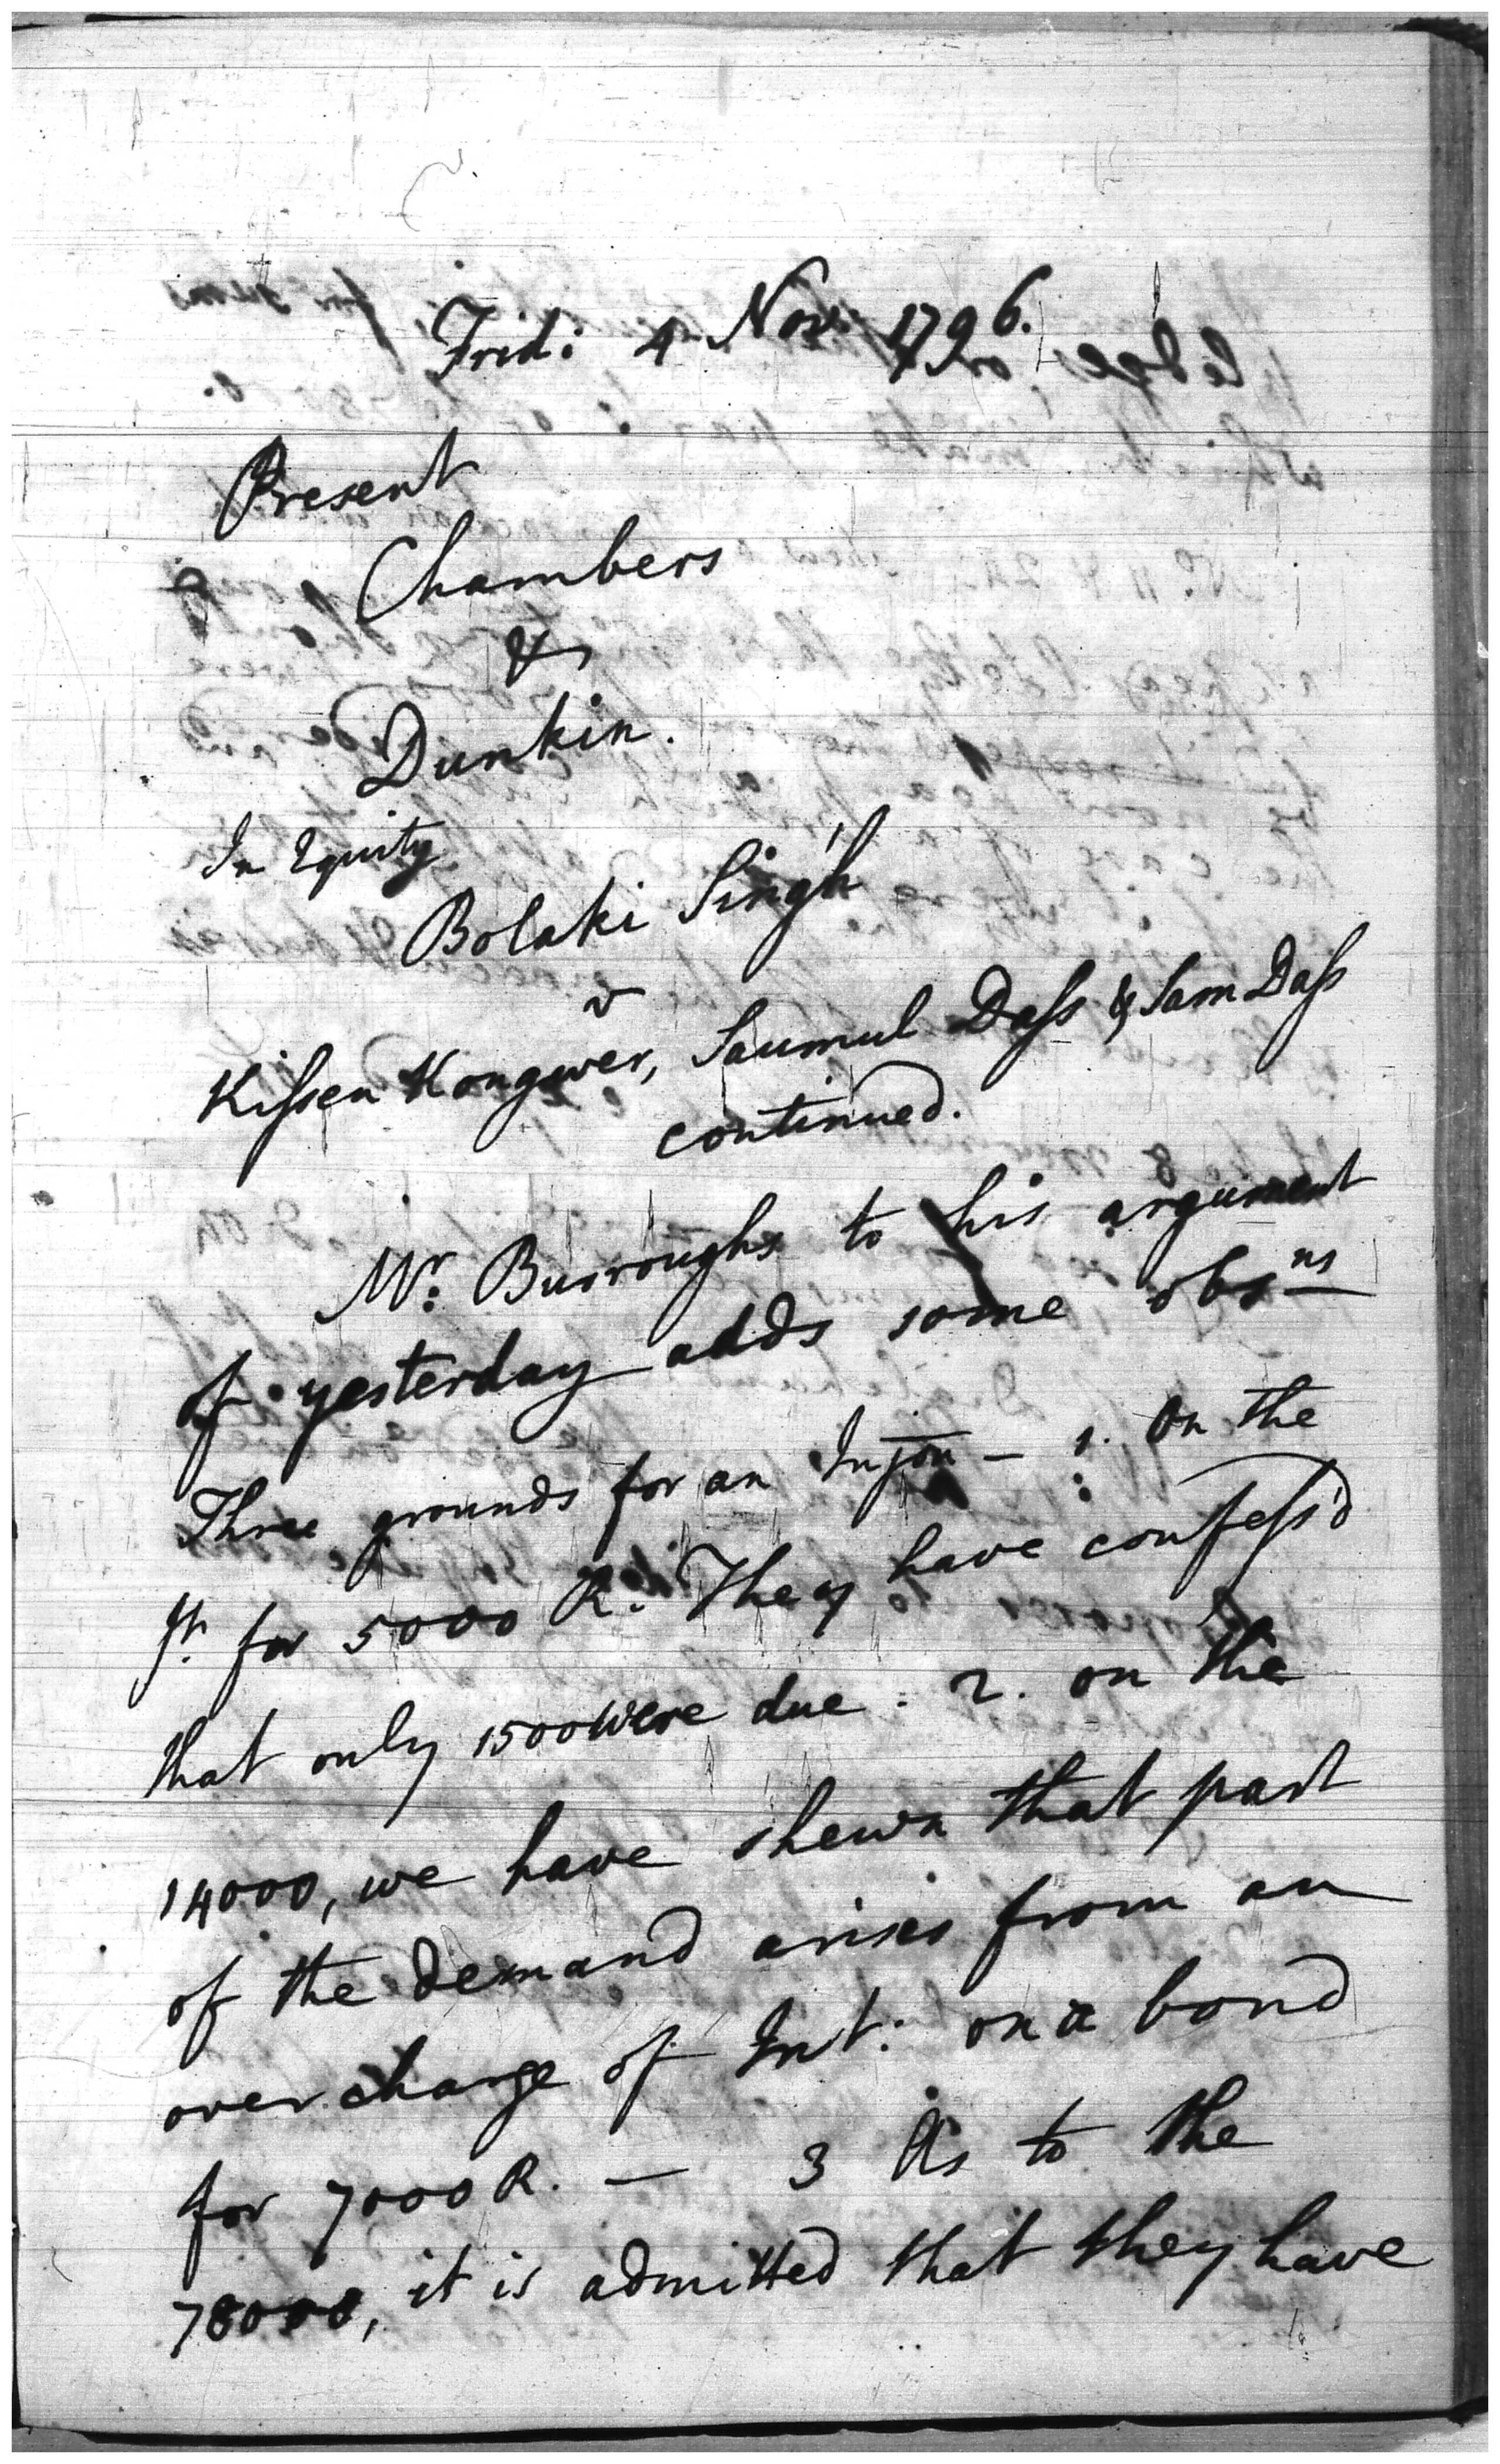 Frid: 4 Nov: 1796.
Present
Chambers
&
Dunkin.
In Equity
Bolaki Singh
v
Kissen Kongwer, Saumul Dass & Sam Dass
continued.
Mr. Burroughs to his argument
of yesterday adds some obsns
Three grounds for an Injon – 1. On the
Jt. for 5000 R. They have confess'd
that only 1500 were due : 2. on the
14000, we have shewn that part
of the demand arises from an
overcharge of Int: on a bond
for 7000 R. — 3 As to the
78000, it is admitted that they have